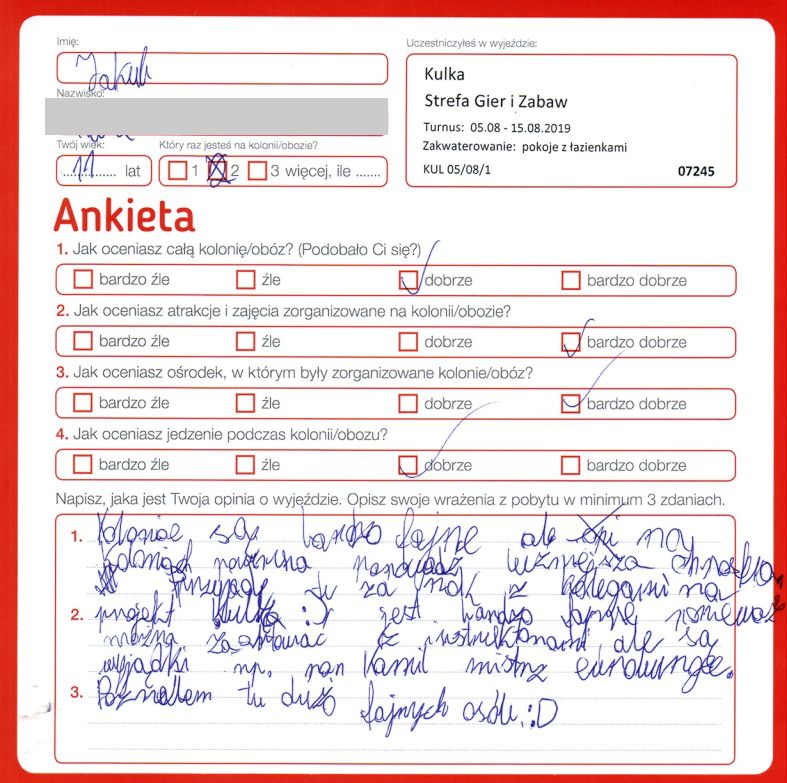 Imię:
Jakub
Nazwisko:
Twój wiek:
11 lat
Który raz jesteś na kolonii/obozie?
1 2 3 więcej, ile .......
Uczestniczyłeś w wyjeździe:
Kulka
Strefa Gier i Zabaw
Turnus: 05.08 - 15.08.2019
Zakwaterowanie: pokoje z łazienkami
KUL 05/08/1 07245
Ankieta
1. Jak oceniasz całą kolonię/obóz? (Podobało Ci się?)
bardzo źle źle dobrze bardzo dobrze
2. Jak oceniasz atrakcje i zajęcia zorganizowane na kolonii/obozie?
bardzo źle źle dobrze bardzo dobrze
3. Jak oceniasz ośrodek, w którym były zorganizowane kolonie/obóz?
bardzo źle źle dobrze bardzo dobrze
4. Jak oceniasz jedzenie podczas kolonii/obozu?
bardzo źle źle dobrze bardzo dobrze
Napisz, jaka jest Twoja opinia o wyjeździe. Opisz swoje wrażenia z pobytu w minimum 3 zdaniach.
1. Kolonie są bardzo fajne ale na
koloniach powinna panować luźniejsza
przyjadę tu za rok z kolegami na
2. projekt :) jest bardzo fajnie ponieważ
można z instruktorami ale są
wyjądki np. pan Kamil mistrz
3. Poznałem tu dużo fajnych osób. :D